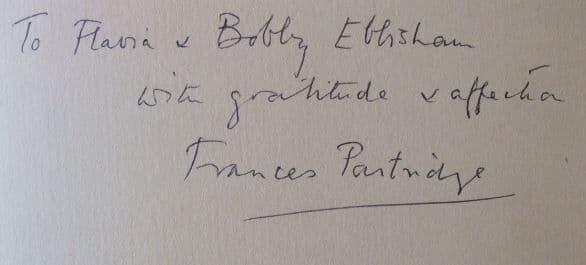 To Flavia & Bobby Ebbisham
with gratitude & affection
Frances Partridge